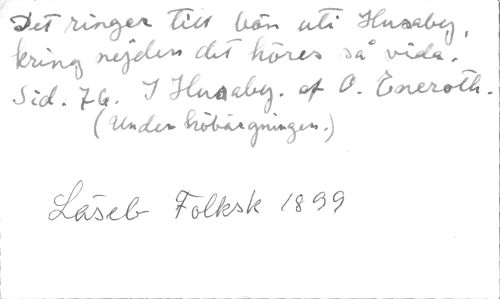 Det ringer till bön uti Husaby,
kring nejden det höres så vida.
Sid. 76. I Husaby. af O. Eneroth.
(Under höbärgningen.)
Läseb Folksk 1899